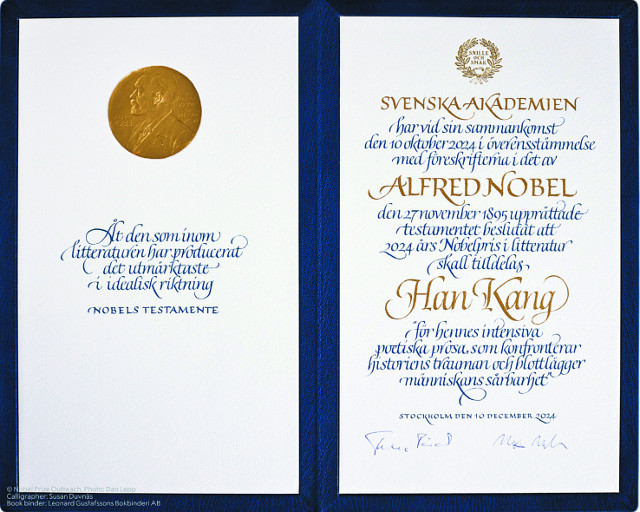 Åt den som inom
litteraturen har producerat
det utmärktaste
i idealisk riktning
NOBELS TESTAMENTE
© Nobel Prize Outreach. Photo: Dan Lepp
Calligrapher: Susan Duvnäs
Book binder: Leonard Gustafssons Bokbinderi AB
SNILLE
OCH
SMAK
SVENSKA AKADEMIEN
har vid sin sammankomst
den 10 oktober 2024 i överensstämmelse
med föreskrifterna i det av
ALFRED NOBEL
den 27 november 1895 upprättade
testamentet beslutat att
2024 års Nobelpris i litteratur
skall tilldelas
Han Kang
"för hennes intensiva
poetiska prosa, som konfronterar
historiens trauman och blottlägger
människans sårbarhet"
STOCKHOLM DEN 10 DECEMBER 2024